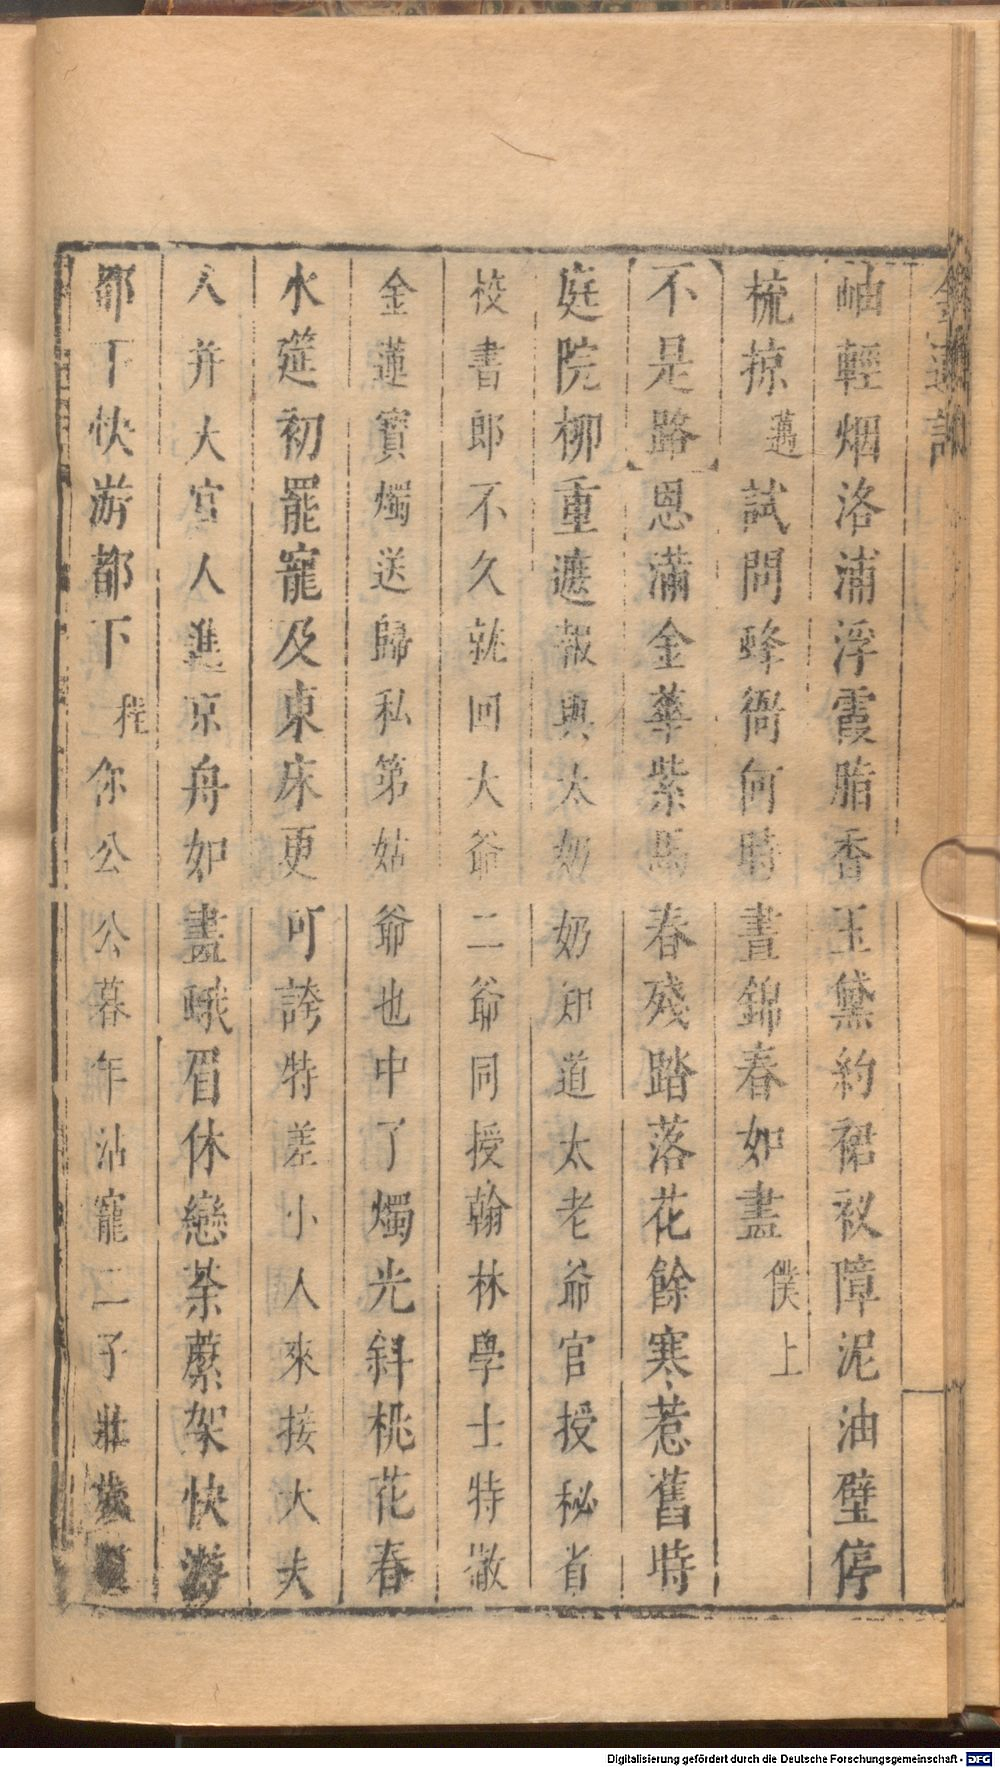 金蓮記
岫輕烟洛浦浮霞脂香玉黛約裙衩障泥油壁停
梳掠邁試問蜂衙何時晝錦春如畫僕上
不是路恩滿金華紫馬春殘踏落花餘寒惹舊時
庭院柳重遮報與太奶奶知道太老爺官授秘省
校書郎不久就回大爺二爺同授翰林學士特撤
金蓮寶燭送歸私第姑爺也中了燭光斜桃花春
水筵初罷寵及東床更可誇特差小人來接大夫
人并大官人進京舟如畫蛾眉休戀荼蘼架快游
都下快游都下程你公公暮年沾寵二子壯歲
Digitalisierung gefördert durch die Deutsche Forschungsgemeinschaft - DFG